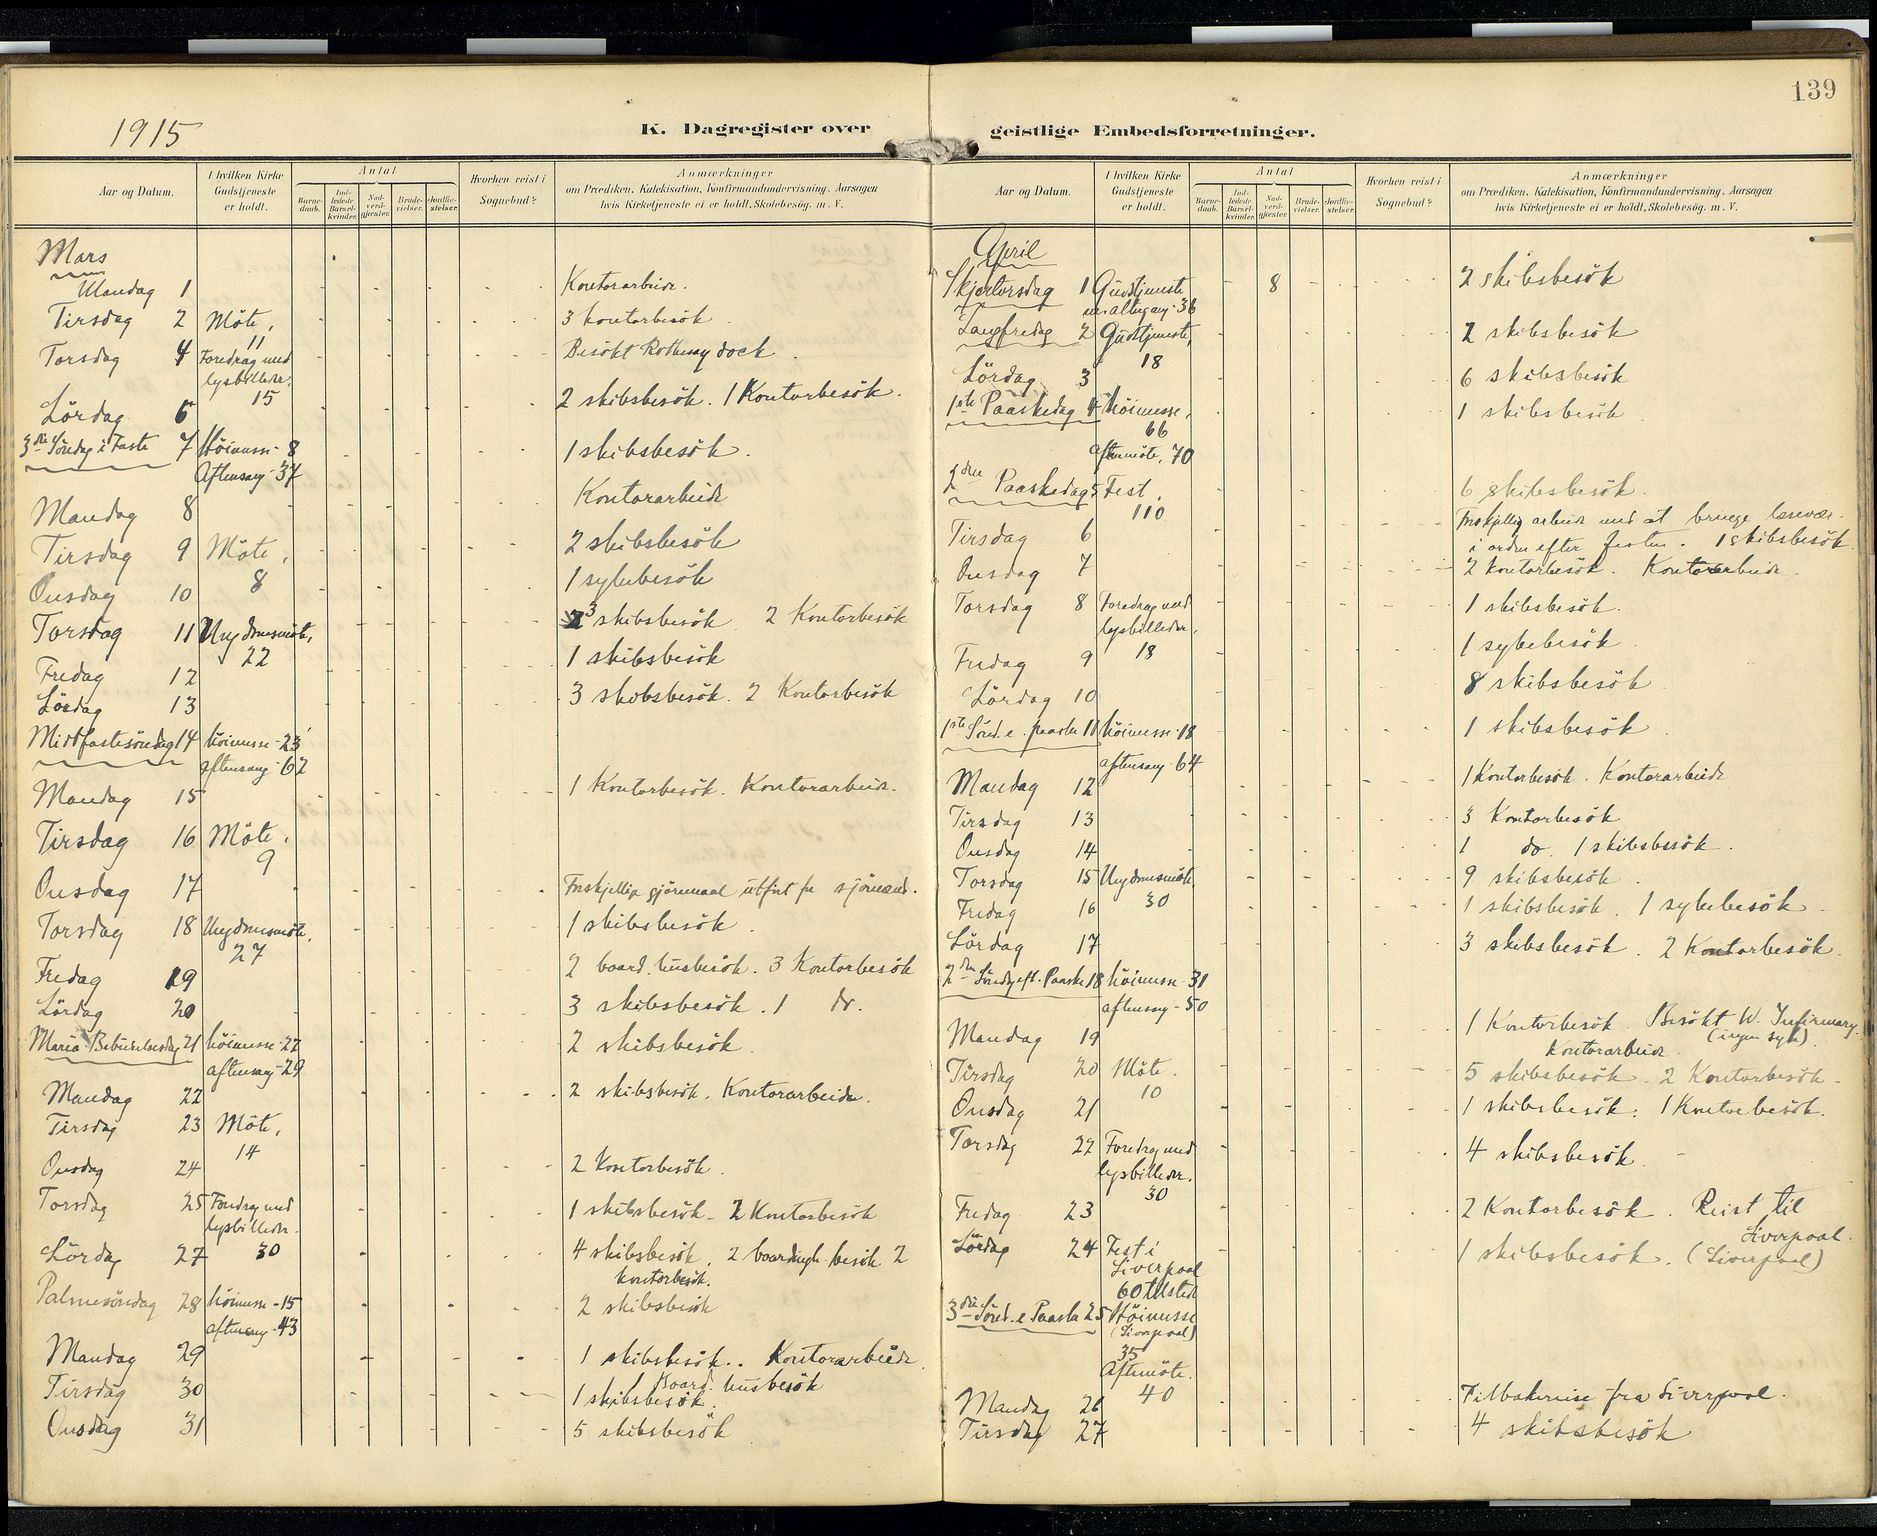 139
1915
K. Dagregister over geistlige Embedsforretninger.
Aar og Datum.
I hvilken Kirke Gudstjeneste er holdt.
Antal
Barne-daab.
Ind-ledede Barsel-kvinder.
Nad-verd-gjester.
Brude-vielser.
Jordfæ-stelser.
Hvorhen reist i Sognebud?
Anmærkninger
om Prædiken, Katekisation, Konfirmandundervisning, Aarsagen
hvis Kirketjeneste ei er holdt, Skolebesøg. m. V.
Mars
Mandag 1 Kontorarbeide.
Tirsdag 2 Möte, 11 3 kontorbesök
Torsdag 4 Foredrag med lysbilleder, 15 Besökt Rothesay dock.
Lördag 6 2 skibsbesök. 1 Kontorbesök.
3die Söndag i Faste 7 Höimesse - 8 1 skibsbesök.
Aftensang - 37
Mandag 8 Kontorarbeide
Tirsdag 9 Möte, 8 2 skibsbesök
Onsdag 10 1 sykebesök
Torsdag 11 Ungdomsmöte, 22 3 skibsbesök 2 Kontorbesök
Fredag 12 1 skibsbesök
Lördag 13 3 skibsbesök. 2 Kontorbesök
Midtfastesöndag 14 höimesse - 23
aftensang - 62
Mandag 15 1 Kontorbesök. Kontorarbeide.
Tirsdag 16 Möte. 9
Onsdag 17 Forskjellige gjöremaal utfört for sjömænd.
Torsdag 18 Ungdomsmöte, 27 1 skibsbesök.
Fredag 19 2 board.husbesök. 3 Kontorbesök
Lördag 20 3 skibsbesök. 1 do.
Maria Bebudelsesdag 21 höimesse - 22 2 skibsbesök.
aftensang - 29
Mandag 22 2 skibsbesök. Kontorarbeide.
Tirsdag 23 Möte, 14
Onsdag 24 2 Kontorbesök.
Torsdag 25 Foredrag med lysbilleder. 30 1 skibsbesök - 2 Kontorbesök
Lördag 27 4 skibsbesök. 2 boardingh. besök 2
kontorbesök.
Palmesöndag 28 höimesse - 15 2 skibsbesök
aftensang - 43
Mandag 29 1 skibsbesök.. Kontorarbeide.
Tirsdag 30 1 skibsbesök. Board. husbesök
Onsdag 31 5 skibsbesök
Aar og Datum.
I hvilken Kirke Gudstjeneste er holdt.
Antal
Barne-daab.
Ind-ledede Barsel-kvinder.
Nad-verd-gjester.
Brude-vielser.
Jordfæ-stelser.
Hvorhen reist i Sognebud?
Anmærkninger
om Prædiken, Katekisation, Konfirmandundervisning, Aarsagen
hvis Kirketjeneste ei er holdt, Skolebesøg. m. V.
April
Skjærtorsdag 1 Gudstjeneste m. altergang - 36 8 2 skibsbesök
Langfredag 2 Gudstjeneste, 18 2 skibsbesök
Lördag 3 6 skibsbesök
1ste Paaskedag 4 höimesse, 66 1 skibsbesök
aftenmöte, 70
2den Paaskedag 5 Fest, 110 6 skibsbesök.
Tirsdag 6 Forskjellig arbeide med at bringe læsevær.
i orden efter festen. 1 skibsbesök.
Onsdag 7 2 kontorbesök. Kontorarbeide.
Torsdag 8 Foredrag med lysbilleder. 18 1 skibsbesök.
Fredag 9 1 sykebesök.
Lördag 10 8 skibsbesök
1ste Sönd. e. paaske 11 höimesse - 18 1 skibsbesök
aftensang - 64
Mandag 12 1 Kontorbesök. Kontorarbeide
Tirsdag 13 3 Kontorbesök
Onsdag 14 1 do. 1 skibsbesök.
Torsdag 15 Ungdomsmöte, 30 9 skibsbesök
Fredag 16 1 skibsbesök. 1 sykebesök
Lördag 17 3 skibsbesök. 2 Kontorbesök.
2den Söndg eft. Paaske 18 höimesse - 31
aftensang - 50
Mandag 19 1 Kontorbesök. Besökt W. Infirmary.
(ingen syk). Kontorarbeide
Tirsdag 20 Möte. 10 5 skibsbesök. 2 Kontorbesök -
Onsdag 21 1 skibsbesök. 1 Kontorbesök.
Torsdag 22 Foredrag med lysbilleder. 30 4 skibsbesök.
Fredag 23 2 Kontorbesök. Reist til
Liverpool.
Lördag 24 Fest i Liverpool 60 tilstede 1 skibsbesök. (Liverpool)
3die Sönd. e Paaske 25 Höimesse (Liverpool) 35
Aftenmöte. 40
Mandag 26 Tilbakereise fra Liverpool.
Tirsdag 27 4 skibsbesök